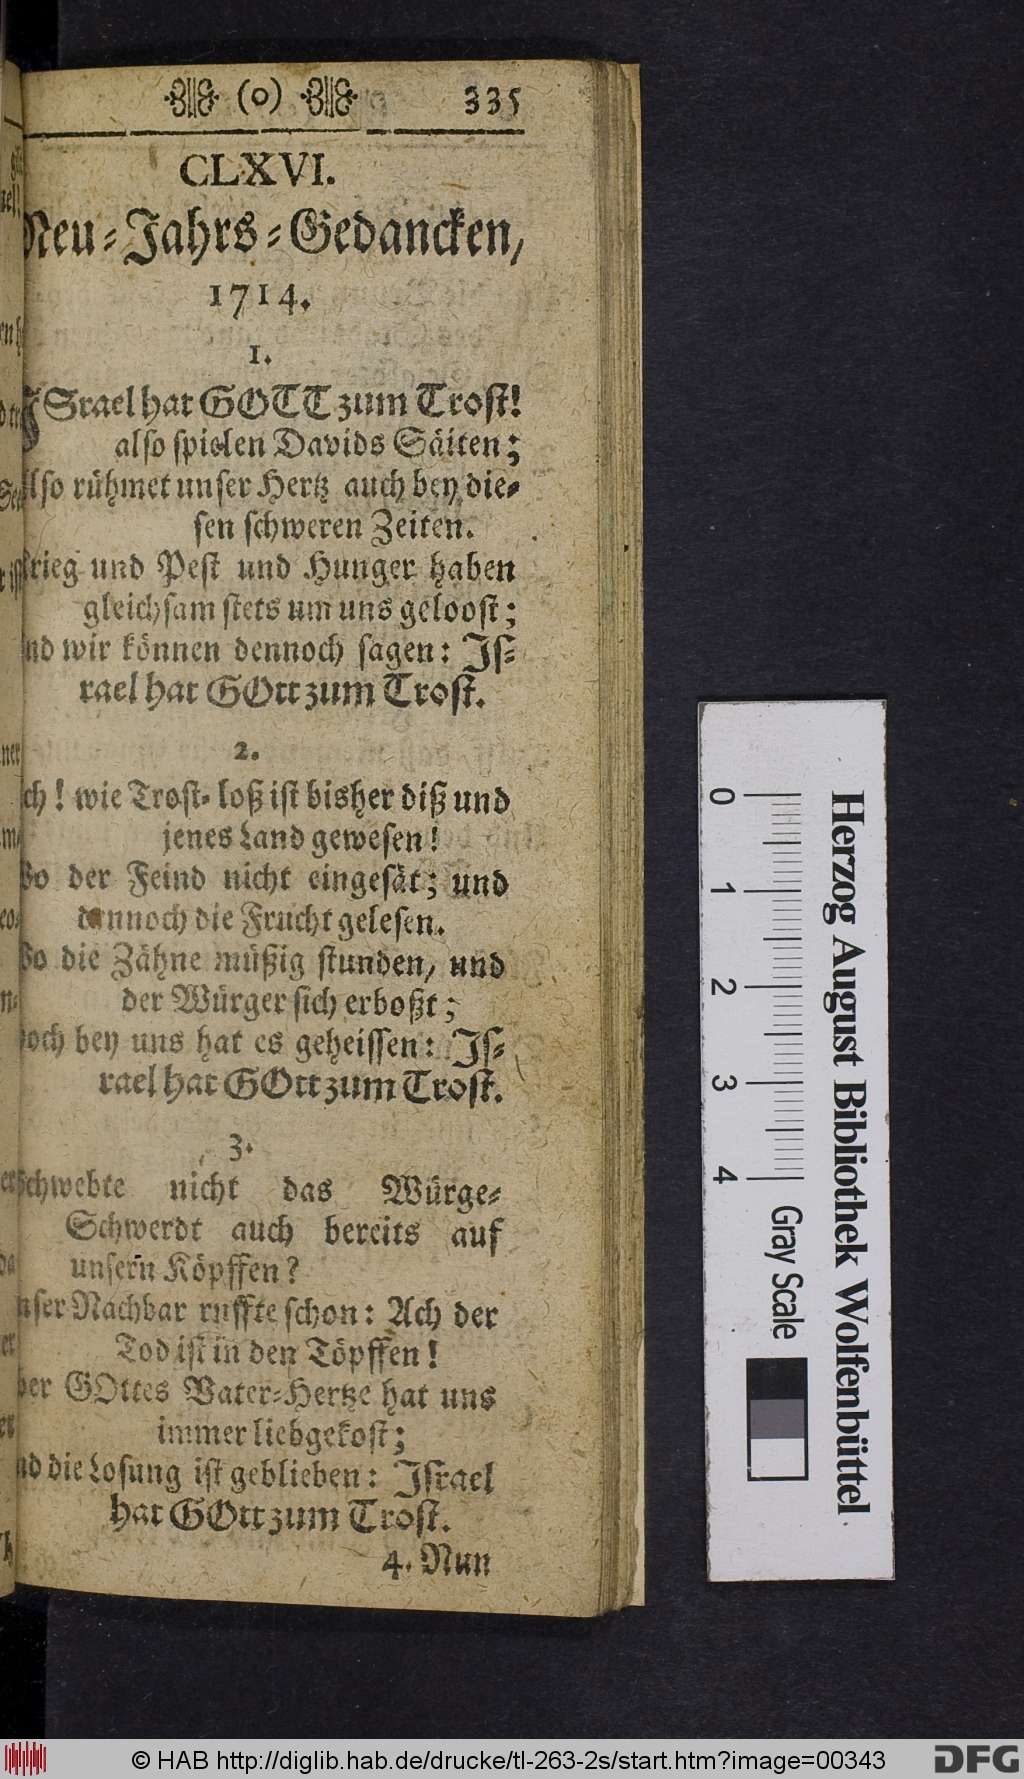 (o) 335
CLXVI.
Neu-Jahrs-Gedancken,
1714.
1.
JSrael hat GOTT zum Trost!
also spielen Davids Säiten;
Also rühmet unser Hertz auch bey die-
sen schweren Zeiten.
Krieg und Pest und Hunger haben
gleichsam stets um uns geloost;
Und wir können dennoch sagen: Js-
rael hat GOtt zum Trost.
2.
Ach! wie Trost-loß ist bisher diß und
jenes Land gewesen!
Wo der Feind nicht eingesät; und
dennoch die Frucht gelesen.
Wo die Zähne müßig stunden, und
der Würger sich erboßt;
Doch bey uns hat es geheissen: Js-
rael hat GOtt zum Trost.
3.
Schwebte nicht das Würge-
Schwerdt auch bereits auf
unsern Köpffen?
Unser Nachbar ruffte schon: Ach der
Tod ist in den Töpffen!
Aber GOttes Vater-Hertze hat uns
immer liebgekost;
Und die Losung ist geblieben: Jsrael
hat GOtt zum Trost.
4. Nun
0 1 2 3 4 Gray Scale
Herzog August Bibliothek Wolfenbüttel
© HAB http://diglib.hab.de/drucke/tl-263-2s/start.htm?image=00343 DFG